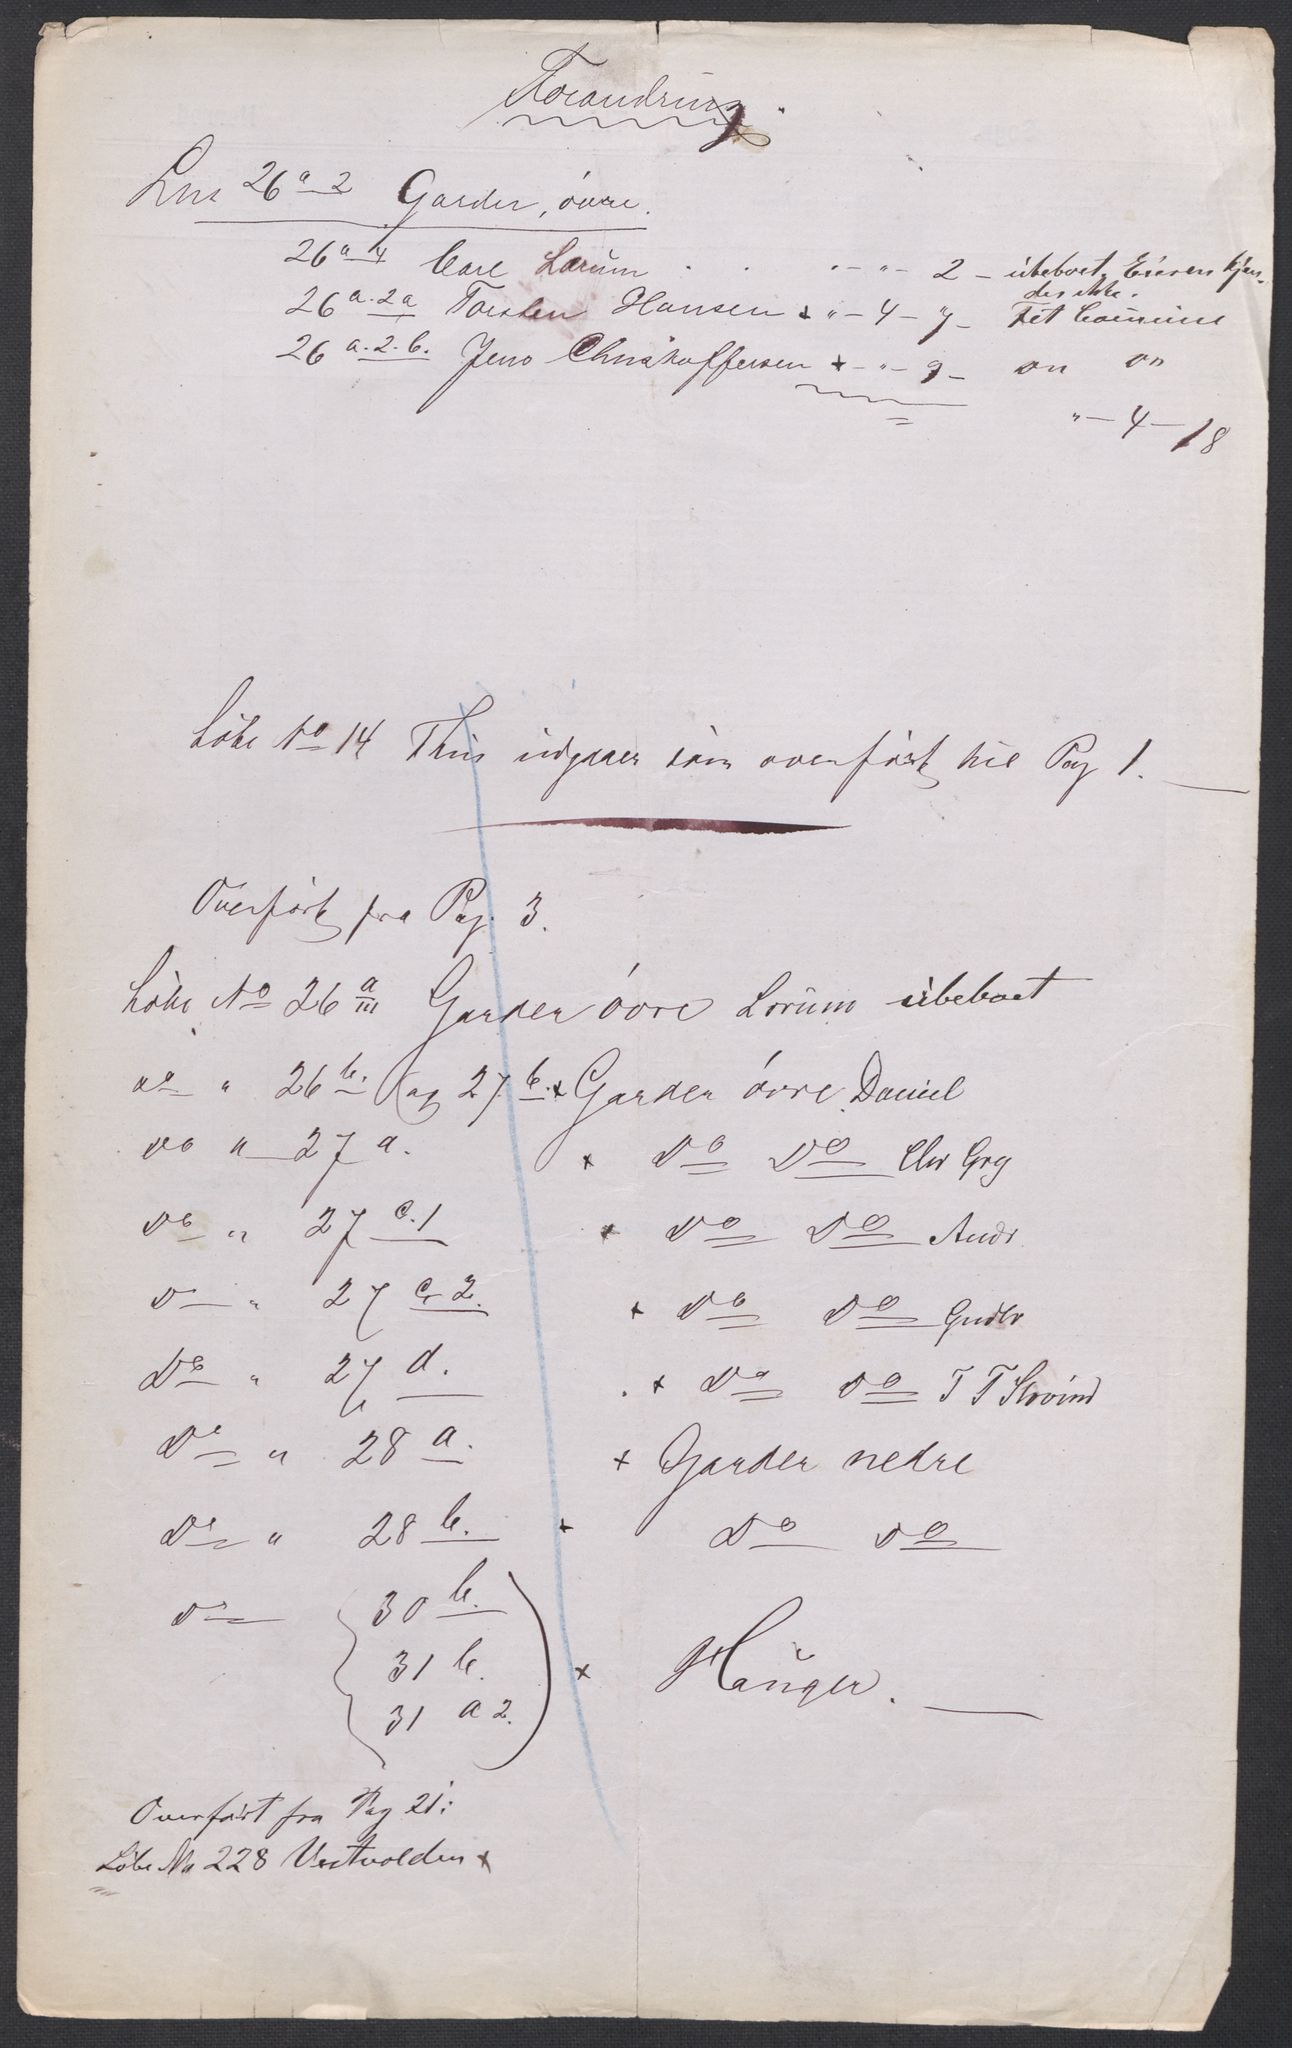 Forandring
Lnr 26 a 2 Garder, övre.
26 a 4 Carl Lorum . . . - " - 2 - ubeboet. Eieren kjen-
des ikke.
26 a. 2 a Torsten Hansen x " - 4 - 7 - Fet Commune
26 a. 2. b. Jens Christoffersen x - " - 9 - do do
" - 4 - 18
Löbe No 14 This udgaaer som overfört til Pag 1.
Overfört fra Pag. 3.
Löbe No 26 a III Garder övre Lorum ubeboet
do " 26 b. (og 27 b. x Garder övre Daniel
do " 27 a. x Do Do Chr Grg
Do " 27 c. 1 x Do Do Andr
D " 27 c. 2. x Do Do Gudbr
Do " 27 d. x Do Do T T Hovind
Do " 28 a. x Garder nedre
Do " 28 b. x Do Do
Do 30 b.
31 b. x Hauger.
31 a 2.
Overfört fra Pag 21:
Löbe No 228 Vestvolden x